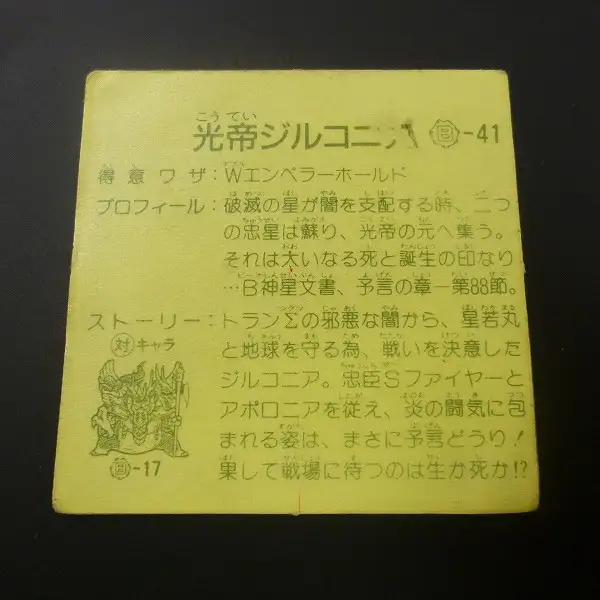 こうてい
光帝ジルコニア Ⓑ-41
得意ワザ：Wエンペラーホールド
プロフィール：破滅の星が闇を支配する時、二つ
の忠星は蘇り、光帝の元へ集う。
それは大いなる死と誕生の印なり
…B神星文書、予言の章—第88節。
ストーリー：トランΣの邪悪な闇から、星若丸
対キャラ
と地球を守る為、戦いを決意した
ジルコニア。忠臣Sファイヤーと
アポロニアを従え、炎の闘気に包
まれる姿は、まさに予言どうり！
果して戦場に待つのは生か死か!?
-17